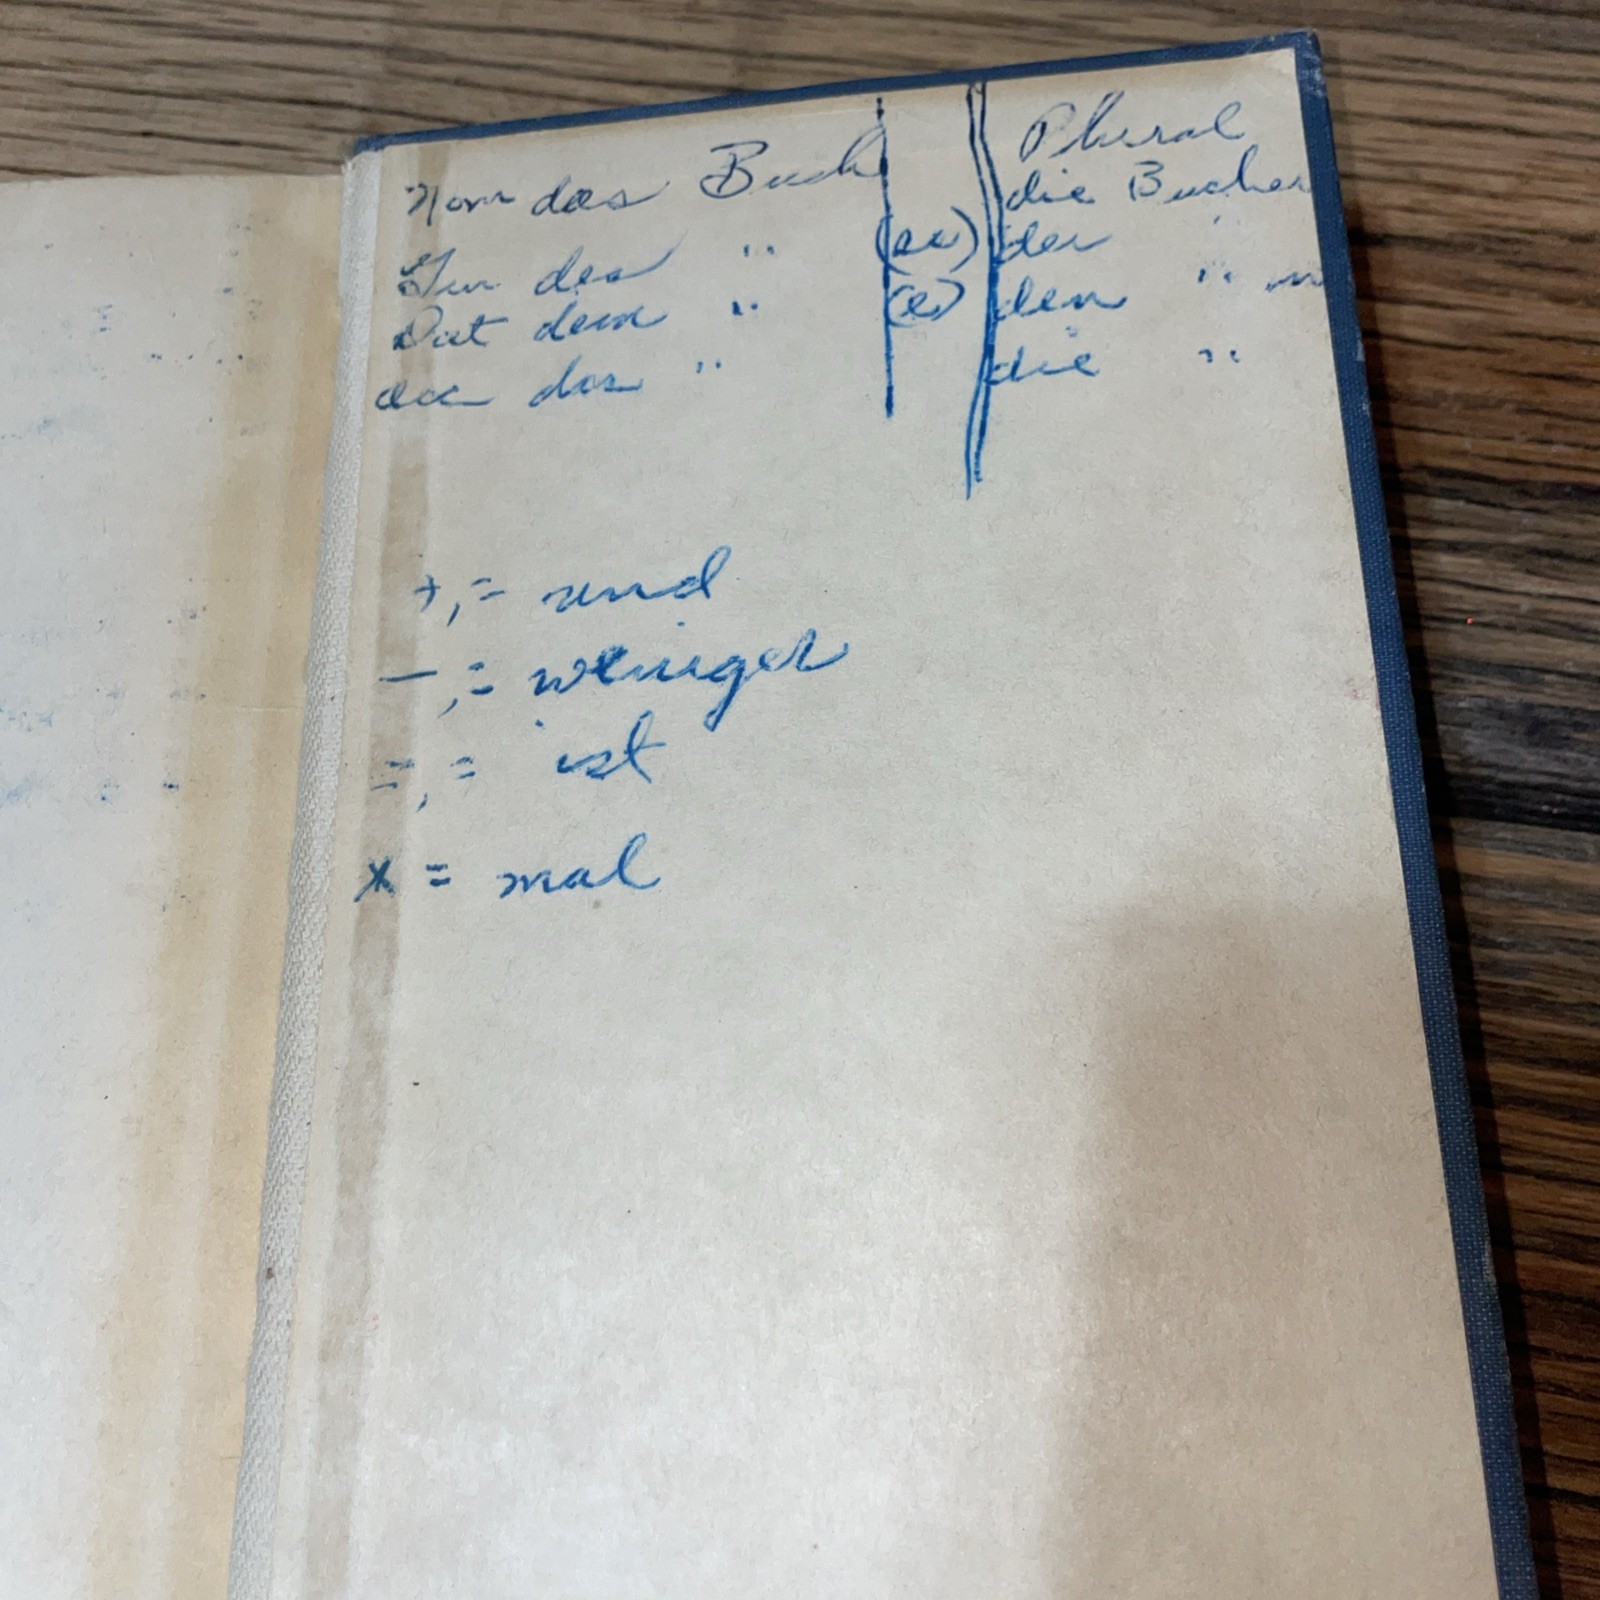 Plural
Nom das Buch die Bucher
Gen des " (es) der "
Dat dem " (e) den " n
acc das " die "
+, = und
-, = weniger
=, = ist
x = mal